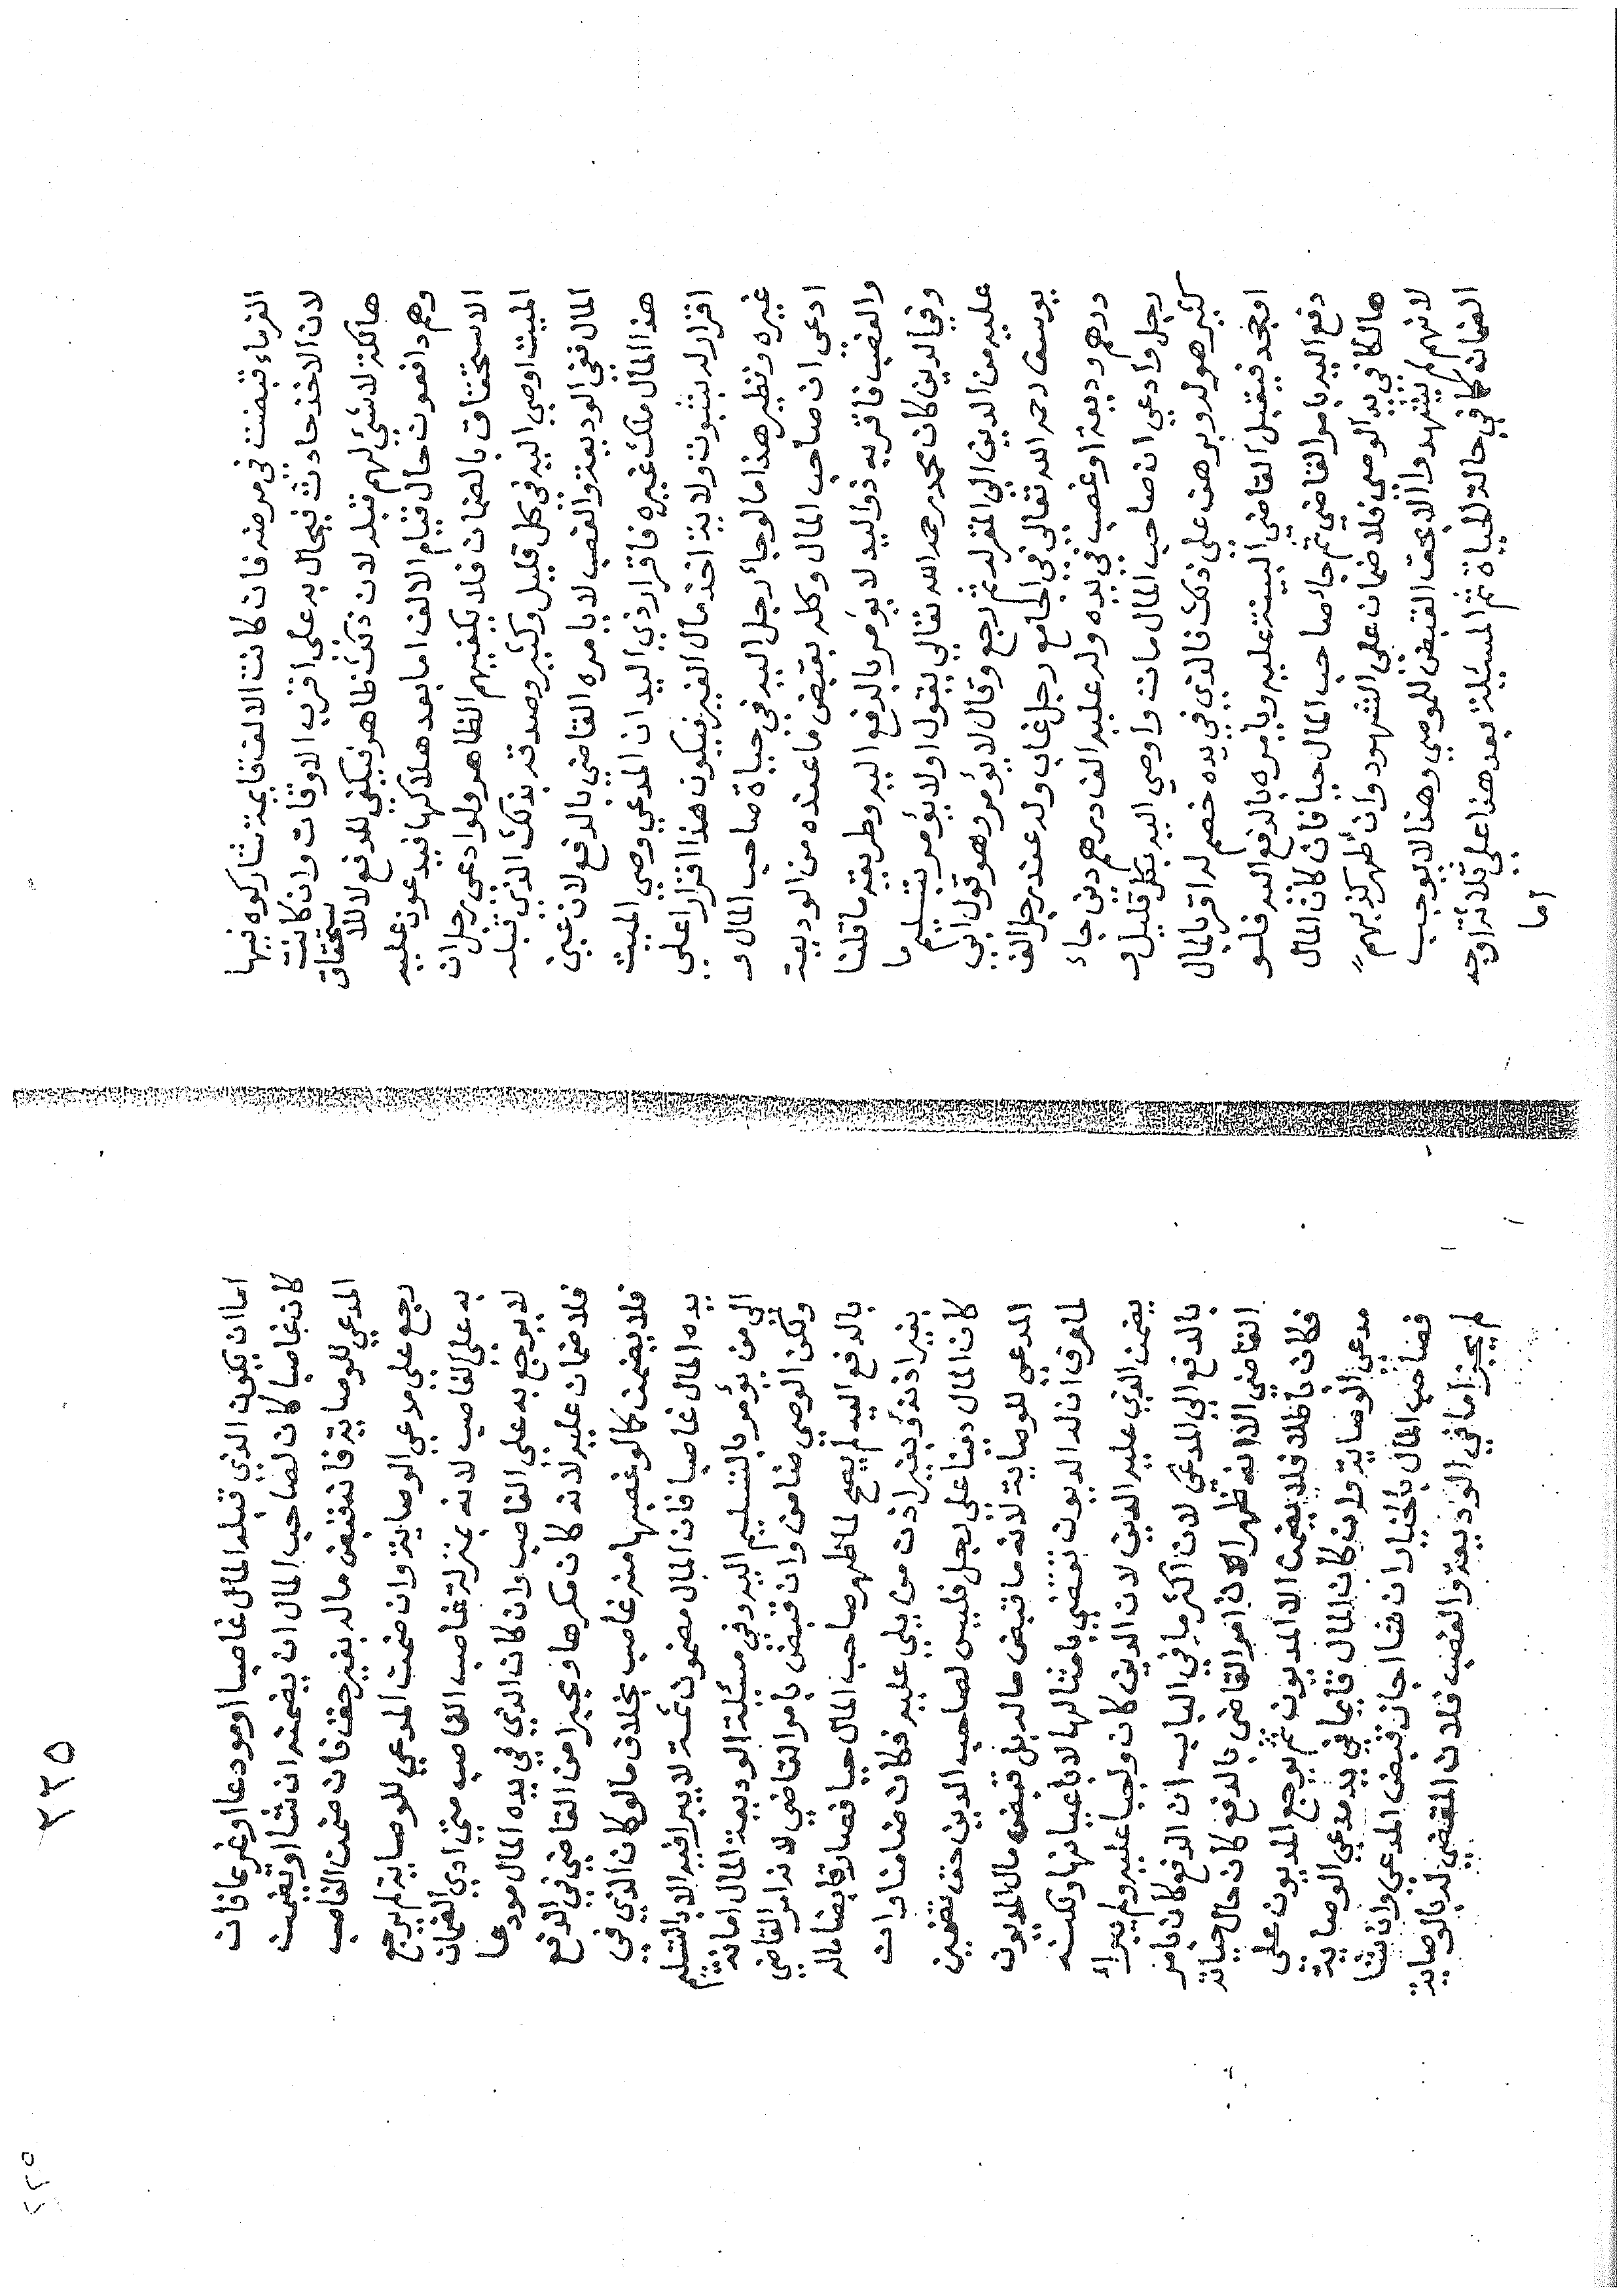 الغرماء قبضت في مرضه فان كانت الالف قايمة شاركوه فيها
لان الاخذ حادث فيحال به على اقرب الاوقات وان كانت
هالكة لا شيء لهم قبله لان ذلك ظاهر فيكفي للدفع لا للا ستحقاق
وهم دافعون حال قيام الالف اما بعد هلاكها فيدعون عليه
الاستحقاق بالضمان فلا يكفيهم الظاهر ولو ادعى رجل ان
الميت اوصي اليه في كل قليل وكثير وصدقه بذلك الذي قبله
المال ففي الوديعة والغصب لا يامره القاضي بالدفع لان غبن
هذا المال ملك غيره فاقرار ذي اليد ان المدعي وصي الميت
اقرار له بثبوت ولاية اخذ مال الغير فيكون هذا اقرار اعلي
غيره ونظير هذا ما لو جاء رجل اليه في حياة صاحب المال و
ادعى ان صاحب المال وكله بقبض ما عنده من الوديعة
والغصب فاقر به ذو اليد لا يؤمر بالدفع اليه وطريقه ما قلنا
وفي الدين كان محمد رحمه الله تعالي يقول اولا يؤمر بتسليم ما
عليه من الدين الي المقر له ثم رجع وقال لا يؤمر وهو قول ابي
يوسف رحمه الله تعالي في الجامع رجل غاب وله عند رجل الف
درهم وديعة او غصب في يده وله عليه الف درهم دين جاء
رجل وادعي ان صاحب المال مات واوصي اليه بكل قليل و
كثير هو له وبرهن علي ذلك فالذي في يده خصم له اقر بالمال
او جحد فيقبل القاضي البينة عليه ويامره بالدفع اليه فلو
دفع اليه بامر القاضي ثم جاء صاحب المال حيا فان كان المال
هالكا في يد الوصي فلا ضمان علي الشهود وان ظهر كذبهم
لانهم لم يشهدوا الا بحق القبض للوصي وهذا لا يوجب
الضمان كما في حالة الحياة ثم المسيلة بعد هذا علي ثلاثة اوجه
اما
٢٣٥
اما ان يكون الذي قبله المال غاصبا او مودعا او غريما فان
كان غاصبا كان لصاحب المال ان يضمنه ان شا او يضمن
المدعي للوصاية فانه قبض ماله بغير حق فان ضمن الغاصب
رجع علي مدعي الوصاية وان ضمن المدعي للوصاية لم يرجع
به علي الغاصب لانه بمنزلة غاصب الغاصب متي ادي الضمان
لا يرجع به علي الغاصب وان كان الذي في يده المال مودعا
فلا ضمان عليه لانه كان مكرها ومجبرا من القاضي في الدفع
فلا يضمن كما لو غصبها منه غاصب بخلاف ما لو كان الذي في
يده المال غاصبا فان المال مضمون ثمة لا يبرا فيه الا بالتسليم
الي من يؤمر بالتسليم اليه وفي مسيلة الوديعة المال امانة
ولكن الوصي ضامن وان قبض بامر القاضي لانه امر القاضي
بالدفع اليه لم يصح لما ظهر صاحب المال حيا فصار قابضا ماله
بغير اذنه وبغير اذن من يلي عليه فكان ضامنا وان
كان المال دينا علي رجل فليس لصاحب الدين حق تضمين
المدعي للوصاية لانه ما قبض ماله بل قبض مال المديون
لما عرف ان الديون تقضي بامثالها لا باعيانها ولكنه
يضمن الذي عليه الدين لان الدين كان واجبا عليه ولم يبراء
بالدفع الي المدعي لان اكثر ما في الباب ان الدفع كان بامر
القاضي الا انه ظهر ان امر القاضي بالدفع كان حال حياته
فكان باطلا فلا يضمن الا المديون ثم يرجع المديون علي
مدعي الوصاية وان كان المال قايما في يد مدعي الوصاية
فصاحب المال بالخيار ان شا اجاز قبض المدعي وان شا
لم يجز اما في الوديعة والغصب فلان المقضي له بالوصاية
٢٢٥